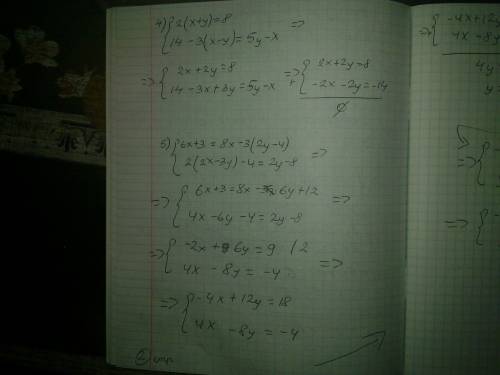 4) { 2(x+y)=8
14-3(x-y)=5y-x =>
=> { 2x+2y=8
14-3x+3y=5y-x
=> + { 2x+2y=8
-2x-2y=-14
∅
5) { 6x+3=8x-3(2y-4)
2(2x-3y)-4=2y-8 =>
=> { 6x+3=8x-6y+12
4x-6y-4=2y-8 =>
=> { -2x+6y=9 |2
4x-8y=-4 =>
=> { -4x+12y=18
4x-8y=-4
2 стр
=> { -4x+12
4x-8y
4y=
y=
=> {
=> {